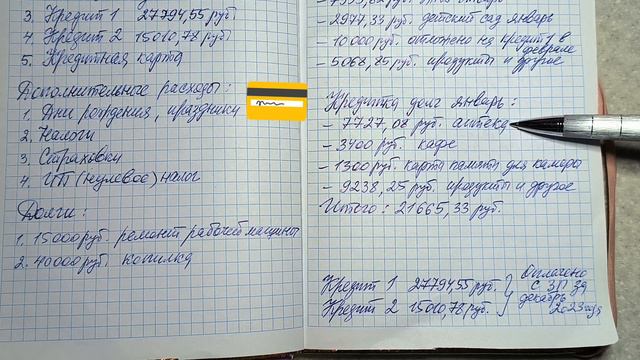 3. Кредит 1 27794,55 руб.
4. Кредит 2 15010,78 руб.
5. Кредитная карта
Дополнительные расходы:
1. Дни рождения, праздники
2. Налоги
3. Страховки
4. ИП (нулевое) налог
Долги:
1. 15000 руб. ремонт рабочей машины
2. 40000 руб. копилка
- 2977,33 руб. детский сад январь
- 10000 руб. отложено на кредит 1 в феврале
- 5068,85 руб. продукты и другое
Кредитка долг январь:
- 7727,08 руб. аптека
- 3400 руб. кафе
- 1300 руб. карта памяти для камеры
- 9238,25 руб. продукты и другое
Итого: 21665,33 руб.
Кредит 1 27794,55 руб.
Кредит 2 15010,78 руб.
Оплачено
с ЗП за
декабрь
2023 года